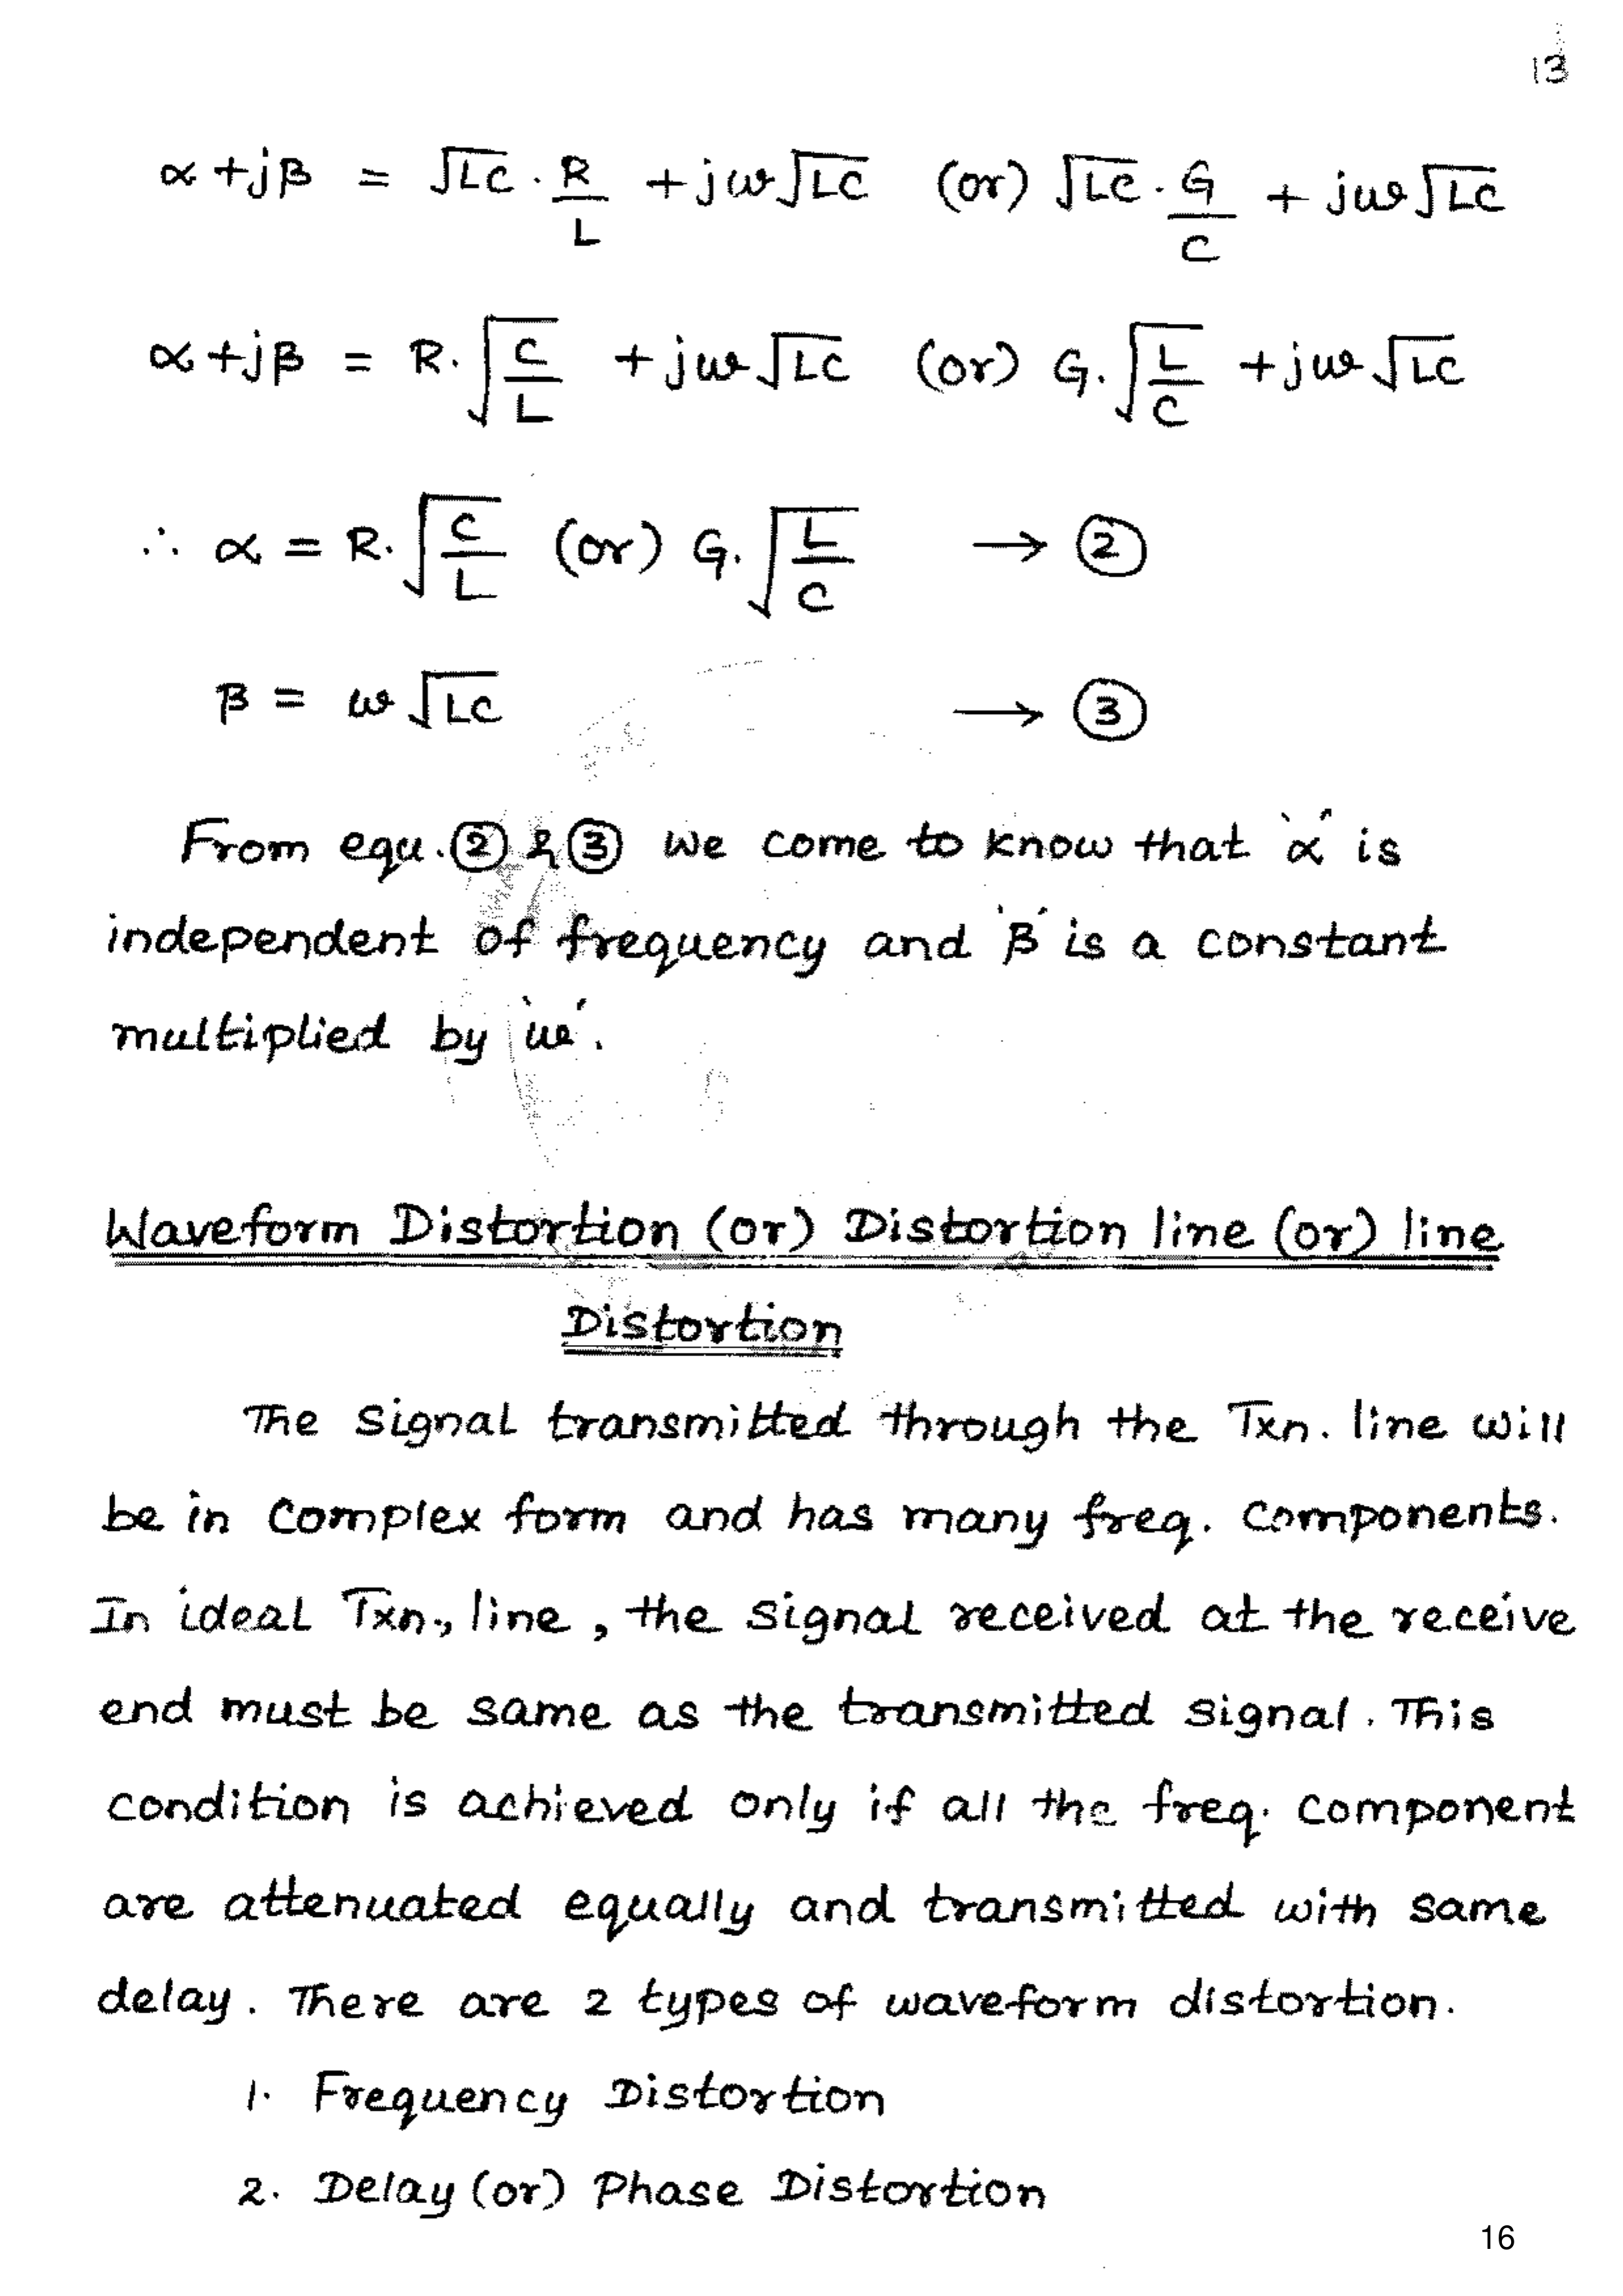 13
α + jβ = √LC · R/L + jω√LC (or) √LC · G/C + jω√LC
α + jβ = R. √(C/L) + jω√LC (or) G. √(L/C) + jω√LC
∴ α = R. √(C/L) (or) G. √(L/C) → ②
β = ω√LC → ③
From equ. ② & ③ we come to know that 'α' is
independent of frequency and 'β' is a constant
multiplied by 'ω'.
Waveform Distortion (or) Distortion line (or) line
Distortion
The signal transmitted through the Txn. line will
be in complex form and has many freq. components.
In ideal Txn., line, the signal received at the receive
end must be same as the transmitted signal. This
condition is achieved only if all the freq. component
are attenuated equally and transmitted with same
delay. There are 2 types of waveform distortion.
1. Frequency Distortion
2. Delay (or) Phase Distortion
16